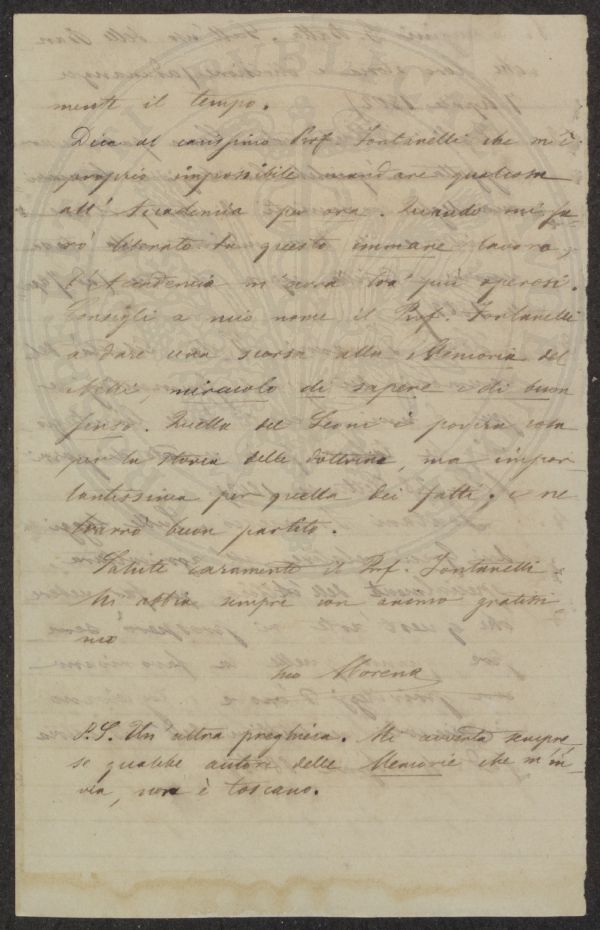 mente il tempo.
Dica al carissimo Prof. Fontanelli che m'è
proprio impossibile mandare qualcosa
all'Accademia per ora. Quando mi sa-
rò liberato da questo immane lavoro,
l'Accademia m'avrà tra' più operosi.
Consigli a mio nome il Prof. Fontanelli
a dare una scorsa alla Memoria del
miracolo di sapere e di buon
senso. Quella del Leoni è povera cosa
per la storia delle dottrine, ma impor-
tantissima per quella dei fatti; e ne
trarrò buon partito.
Saluti caramente il Prof. Fontanelli
Mi abbia sempre con animo gratissi-
mo
suo Morena
P.S. Un'altra preghiera. Mi avverta sempre,
se qualche autore delle Memorie che m'in-
via, non è toscano.